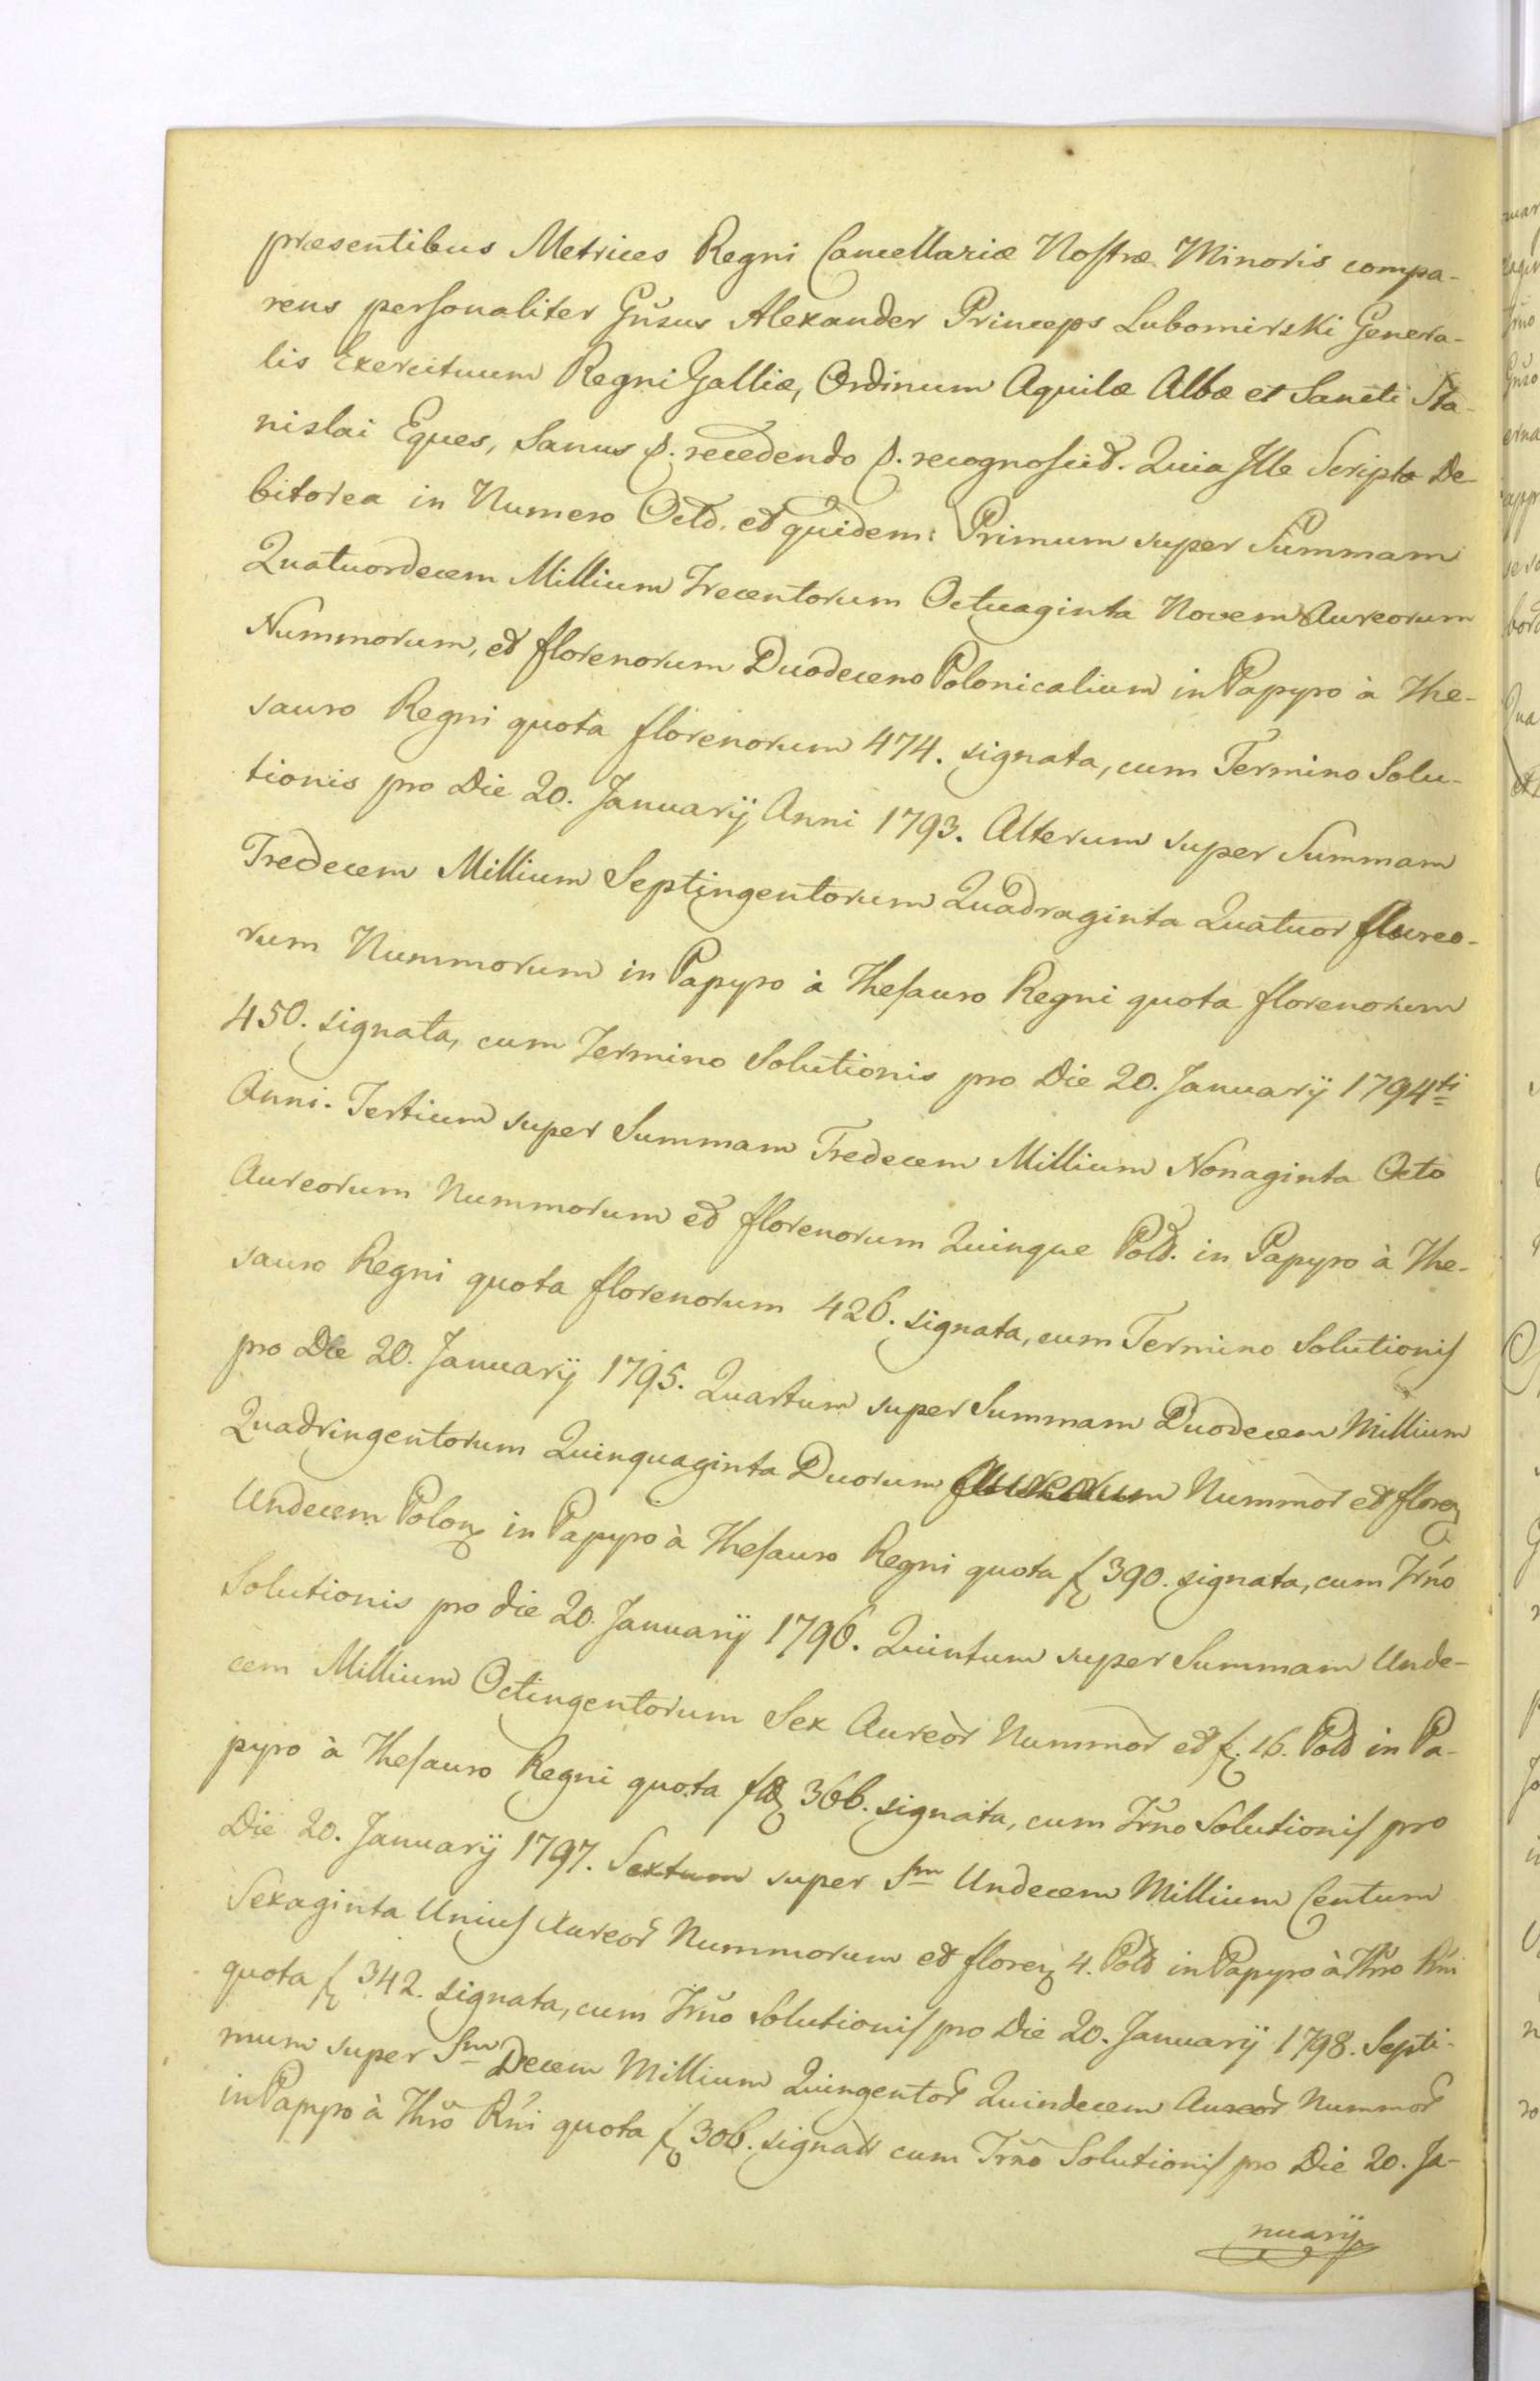 præsentibus Metrices Regni Cancellariæ Nostræ Minoris compa-
rens personaliter Gnsus Alexander Princeps Lubomirski Genera-
lis Exercituum Regni Galliæ, Ordinum Aquilæ Albæ et Sancti Sta-
nislai Eques, Sanus p. recedendo p. recognoscit. Quia Ille Scripta De-
bitorea in Numero Octo. et quidem: Primum super Summam
Quatuordecem Millium Trecentorum Octuaginta Novem Aureorum
Nummorum, et florenorum Duodecem Polonicalium in Papyro à The-
sauro Regni quota florenorum 474. signata, cum Termino Solu-
tionis pro Die 20. Januarij Anni 1793. Alterum super Summam
Tredecem Millium Septingentorum Quadraginta Quatuor Aureo-
rum Nummorum in Papyro à Thesauro Regni quota florenorum
450. signata, cum Termino Solutionis pro Die 20. Januarij 1794ti
Anni. Tertium super Summam Tredecem Millium Nonaginta Octo
Aureorum Nummorum et florenorum Quinque Pold. in Papyro à The-
sauro Regni quota florenorum 426. signata, cum Termino Solutionis
pro Die 20. Januarij 1795. Quartum super Summam Duodecem Millium
Quadringentorum Quinquaginta Duorum Aureorum Nummor et floren
Undecem Polon in Papyro à Thesauro Regni quota f 390. signata, cum Trno
Solutionis pro die 20. Januarij 1796. Quintum super Summam Unde-
cem Millium Octingentorum Sex Aureor Nummor et f. 16. Pold in Pa-
pyro à Thesauro Regni quota fl 366. signata, cum Trno Solutionis pro
Die 20. Januarij 1797. Sextum super Sm Undecem Millium Centum
Sexaginta Unius Aureor Nummorum et floren 4. Pold in Papyro à Thro Rni
quota f 342. signata, cum Trno Solutionis pro Die 20. Januarij 1798. Septi-
mum super Sm Decem Millium Quingentor Quindecem Aureor Nummor
in Papyro à Thro Rni quota f 306. signata cum Trno Solutionis pro Die 20. Ja-
nuarij